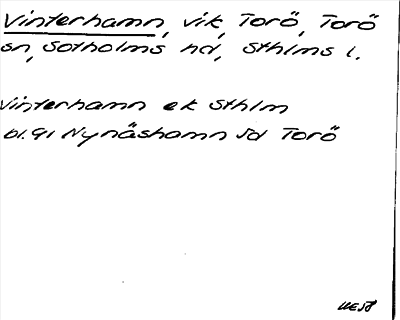 Vinterhamn, vik, Torö, Torö
sn, Sotholms hd, Sthlms l.
Vinterhamn ek Sthlm
bl. 91 Nynäshamn Sd Torö